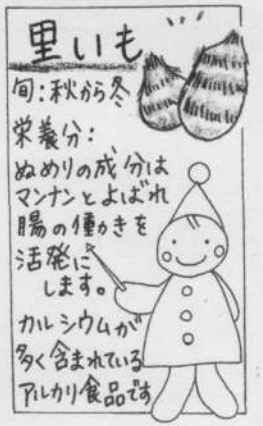 里いも
旬:秋から冬
栄養分:
ぬめりの成分は
マンナンとよばれ
腸の働きを
活発に
します。
カルシウムが
多く含まれている
アルカリ食品です